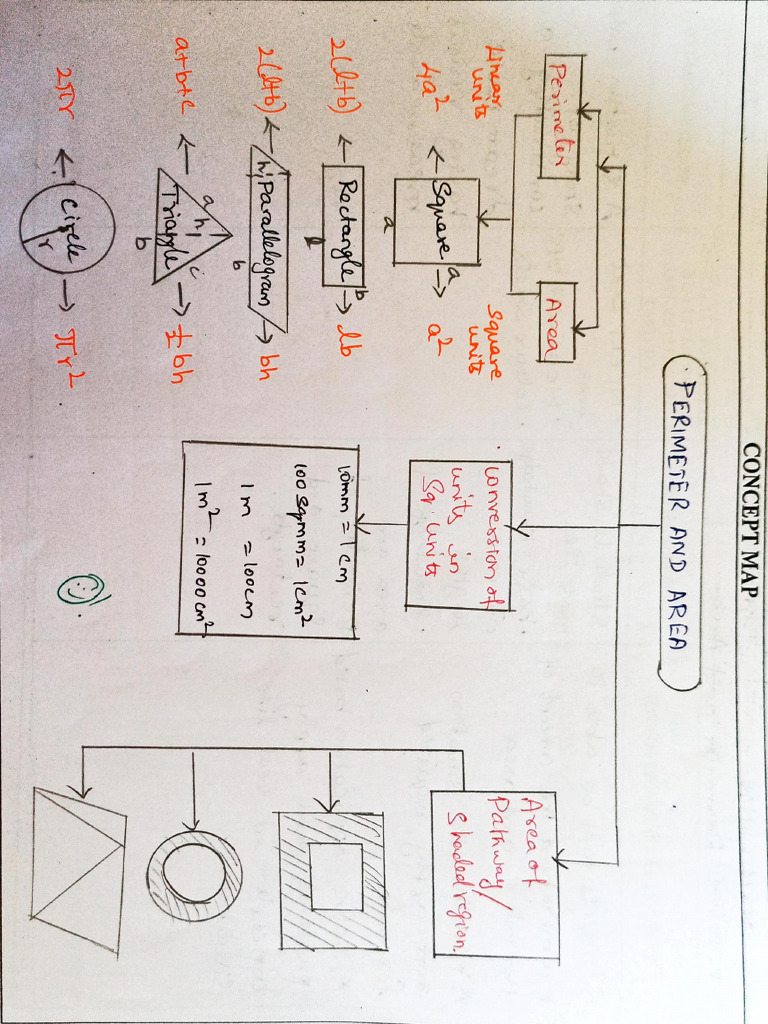 CONCEPT MAP
PERIMETER AND AREA
Perimeter
Area
Linear
units
Square
units
4a²
Square
a
a
a²
2(l+b)
Rectangle
b
l
lb
2(l+b)
h
Parallelogram
b
bh
a+b+c
a
h
c
Triangle
b
½bh
2πr
Circle
r
πr²
Conversion of
units in
Sq. units
10mm = 1cm
100sqmm = 1cm²
1m = 100cm
1m² = 10000cm²
Area of
Pathway/
Shaded region